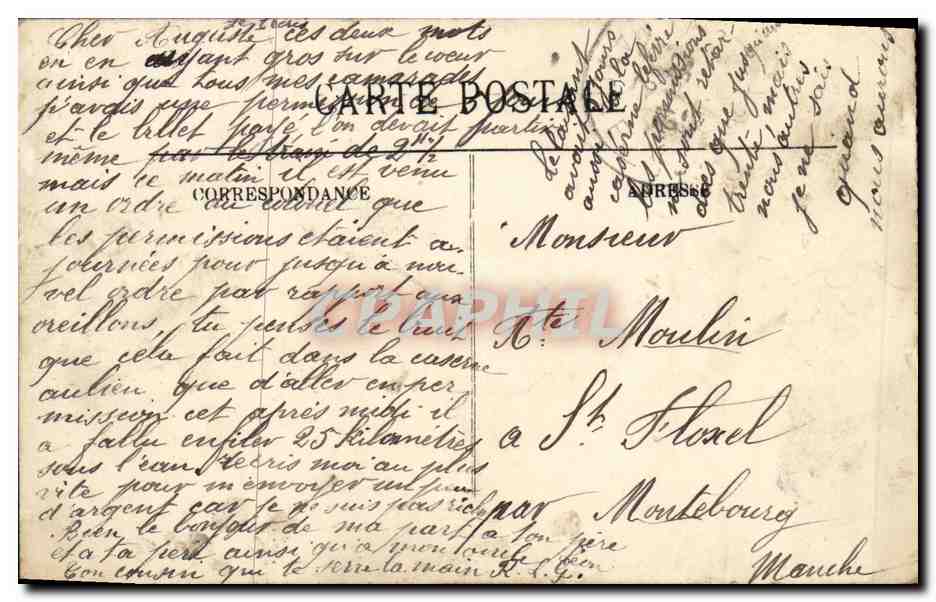 Cher Auguste je t'écris ces deux mots
en en ayant gros sur le coeur
ainsi que tous mes camarades
j'avais une permission de
et le billet payé l'on devait partir
même par le train de 2h 1/2
mais ce matin il est venu
un ordre du colonel que
les permissions étaient a-
journées pour jusqu'à nou-
vel ordre par rapport aux
oreillons, tu penses le bruit
que cela fait dans la caserne
aulieu que d'aller en per
mission cet après midi il
a fallu enfiler 25 kilomètres
sous l'eau. Récris moi au plus
vite pour m'envoyer un peu
d'argent car je ne suis pas riche
Bien le bonjour de ma part a ton père
et a ta père ainsi qu'a mon oncle Léon
Ton cousin qui te serre la main R. L. G.
CARTE POSTALE
CORRESPONDANCE
ADRESSE
avait
aussi
caserne
les permissions
seront retar-
dées que jusqu'au
trente mais
nous autres
je ne sais
quand
nous aurons
Monsieur
Ate Moulin
a St. Floxel
par Montebourg
Manche
CPAPHIL